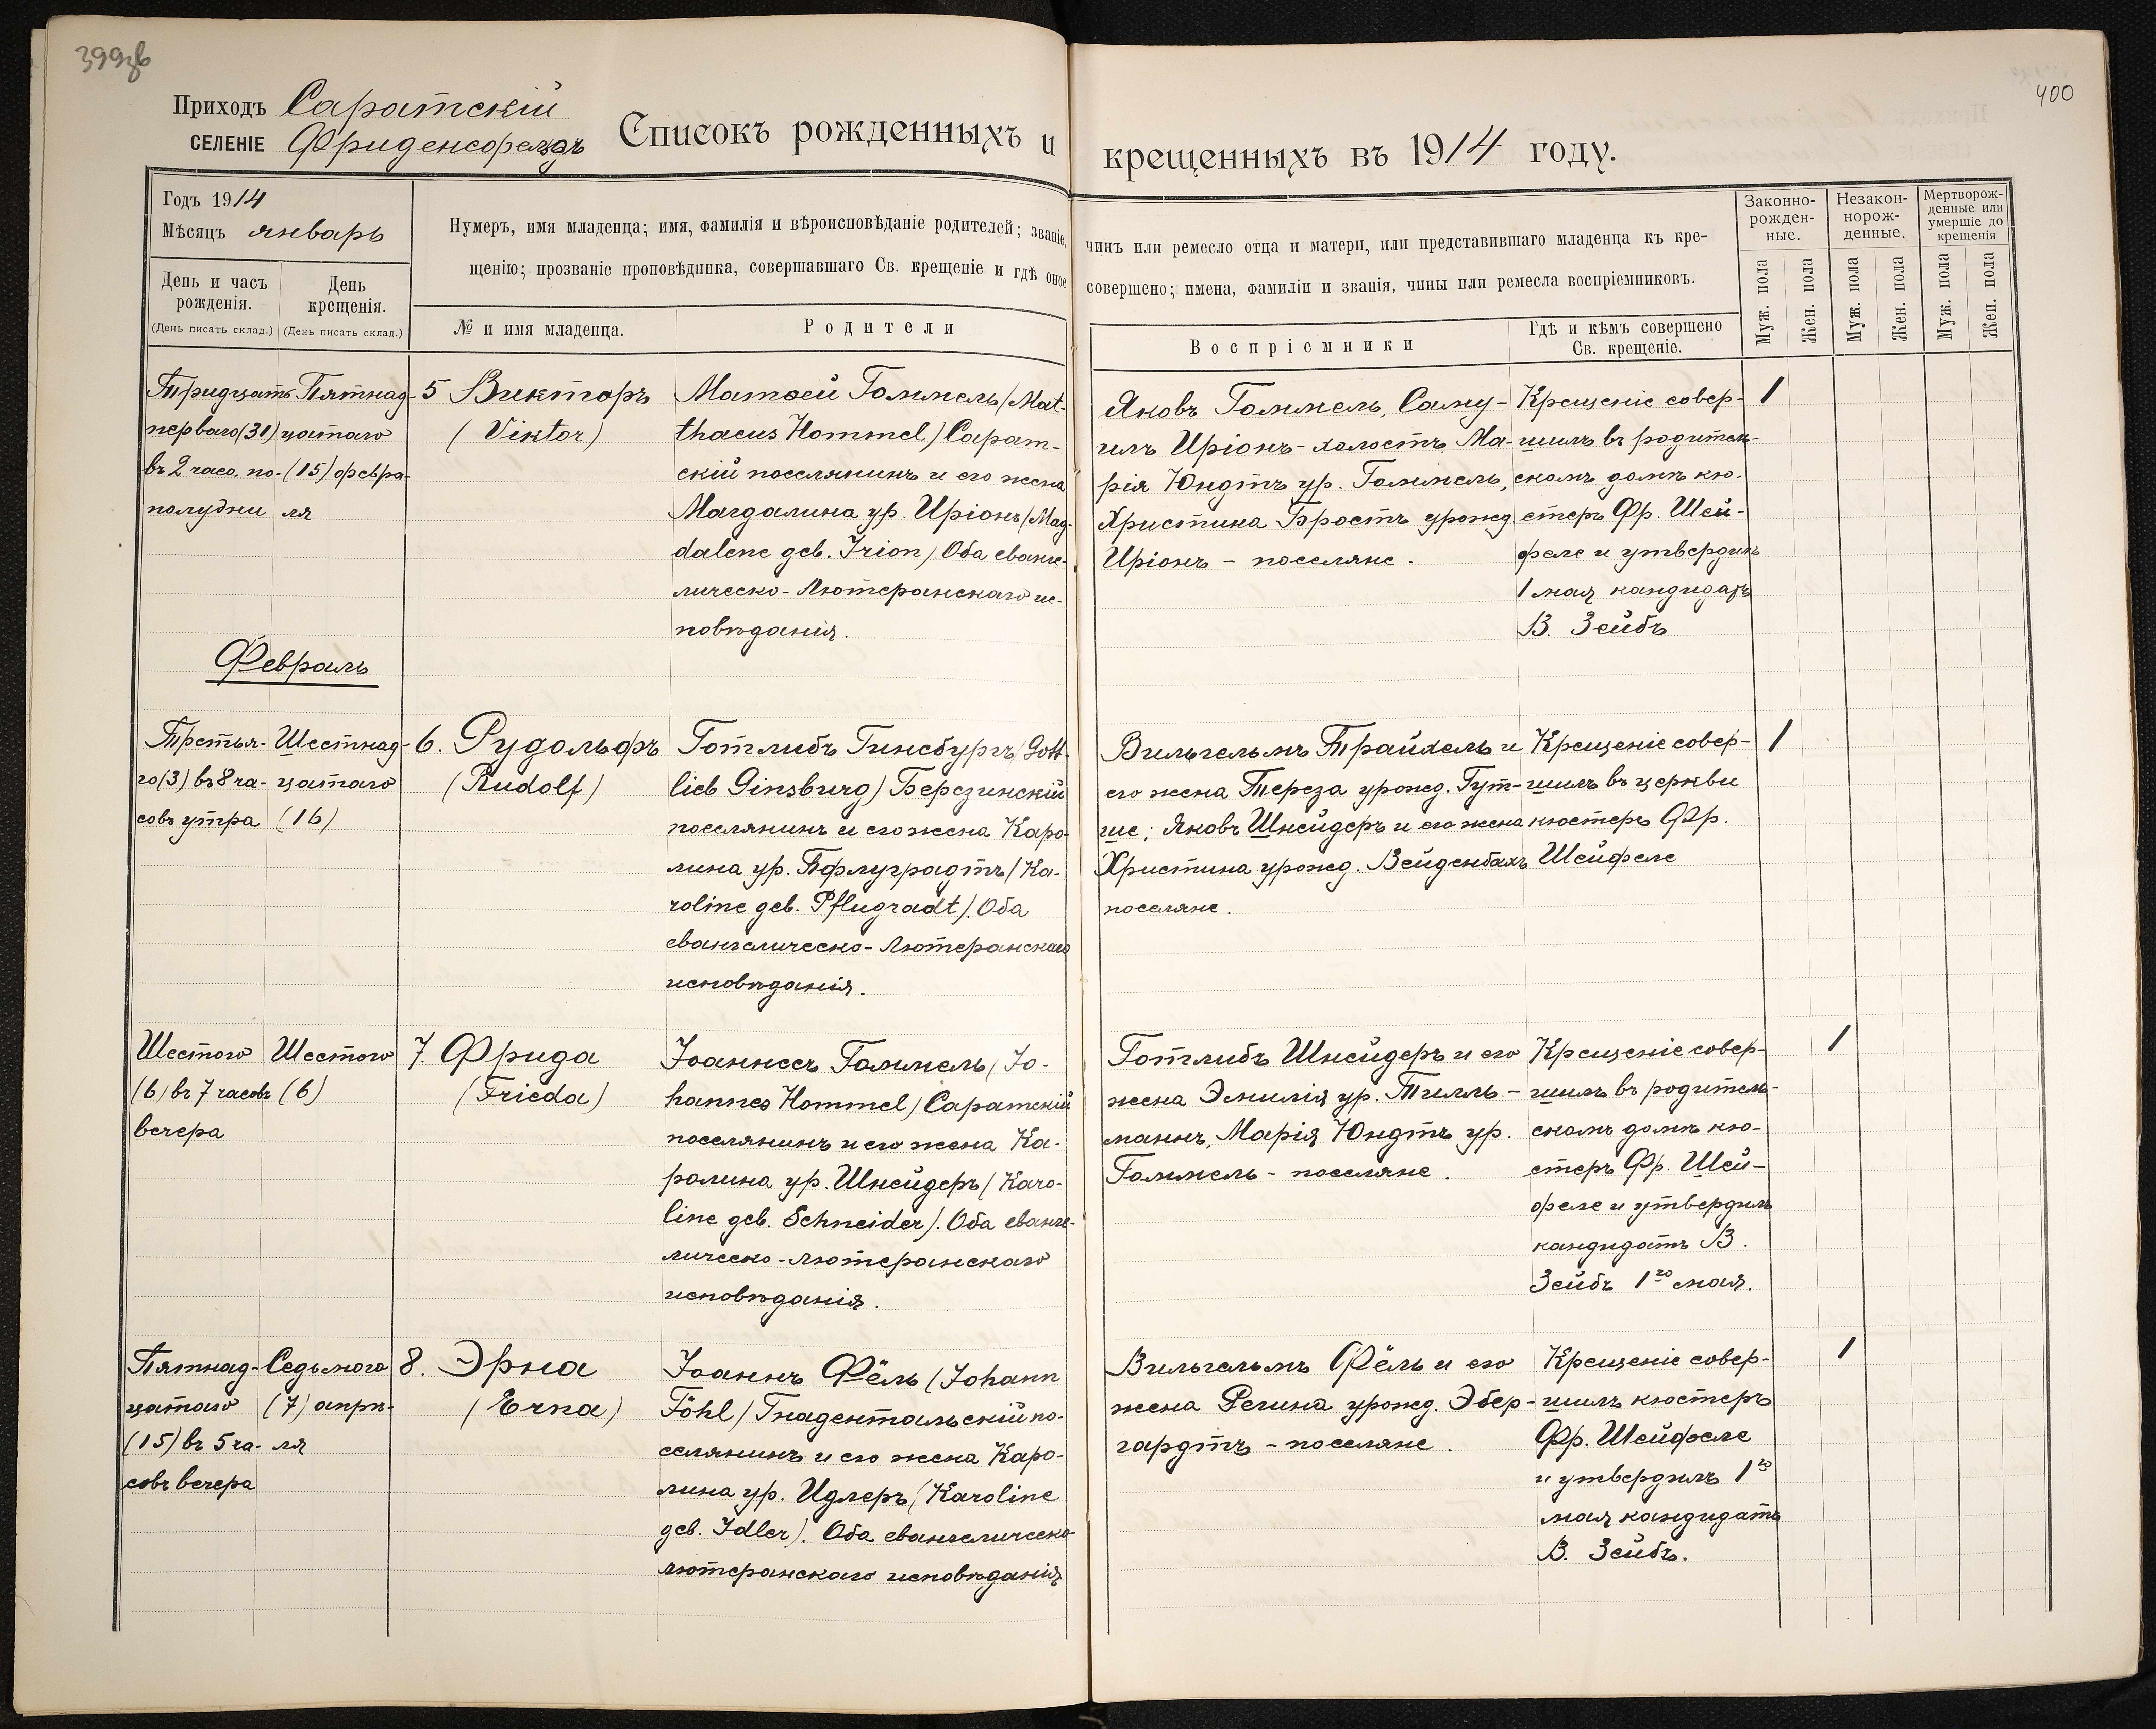 399об
400
Приходъ Саратскій
СЕЛЕНІЕ Фриденсфельдъ
Списокъ рожденныхъ и крещенныхъ въ 1914 году.
Годъ 1914
Мѣсяцъ январь
День и часъ рожденія.
(День писать склад.)
День крещенія.
(День писать склад.)
Нумеръ, имя младенца; имя, фамилія и вѣроисповѣданіе родителей; званіе, чинъ или ремесло отца и матери, или представившаго младенца къ кре-
щенію; прозваніе проповѣдника, совершавшаго Св. крещеніе и гдѣ оное совершено; имена, фамиліи и званія, чины или ремесла воспріемниковъ.
№ и имя младенца.
Родители
Воспріемники
Гдѣ и кѣмъ совершено
Св. крещеніе.
Законно-
рожден-
ные.
Незакон-
норож-
денные.
Мертворож-
денные или
умершіе до
крещенія
Муж. пола
Жен. пола
Муж. пола
Жен. пола
Муж. пола
Жен. пола
Тридцать
перваго (31)
въ 2 часа по-
полудни
Пятнад-
цатаго
(15) февра-
ля
5 Викторъ
(Viktor)
Матѳей Гоммель (Mat-
thaeus Hommel) Сарат-
скій поселянинъ и его жена
Магдалина ур. Иріонъ (Mag-
dalene geb. Irion). Оба еванге-
лическо-Лютеранскаго ис-
повѣданія.
Яковъ Гоммель, Саму-
илъ Иріонъ - холостъ, Ма-
рія Юндтъ ур. Гоммель,
Христина Бростъ урожд.
Иріонъ - поселяне.
Крещеніе совер-
шилъ въ родитель-
скомъ домѣ кю-
стеръ Фр. Шей-
феле и утвердилъ
1 мая кандидатъ
В. Зейбъ
1
Февраль
Третья-
го (3) въ 8 ча-
совъ утра
Шестнад-
цатаго
(16)
6. Рудольфъ
(Rudolf)
Готлибъ Гинсбургъ (Gott-
lieb Ginsburg) Березинскій
поселянинъ и его жена Каро-
лина ур. Пфлугградтъ (Ka-
roline geb. Pflugradt). Оба
евангелическо-Лютеранскаго
исповѣданія.
Вильгельмъ Трайхель и
его жена Тереза урожд. Гут-
ше; Яковъ Шнейдеръ и его жена
Христина урожд. Вейденбахъ
поселяне.
Крещеніе совер-
шилъ въ церкви
кюстеръ Фр.
Шейфеле
1
Шестого
(6) въ 7 часовъ
вечера
Шестого
(6)
7. Фрида
(Frieda)
Іоаннесъ Гоммель (Jo-
hannes Hommel) Саратскій
поселянинъ и его жена Ка-
ролина ур. Шнейдеръ (Karo-
line geb. Schneider). Оба еванге-
лическо-лютеранскаго
исповѣданія.
Готлибъ Шнейдеръ и его
жена Эмилія ур. Тилль-
маннъ, Марія Юндтъ ур.
Гоммель - поселяне.
Крещеніе совер-
шилъ въ родитель-
скомъ домѣ кю-
стеръ Фр. Шей-
феле и утвердилъ
кандидатъ В.
Зейбъ 1го мая.
1
Пятнад-
цатаго
(15) въ 5 ча-
совъ вечера
Седьмого
(7) апрѣ-
ля
8. Эрна
(Erna)
Іоаннъ Фёль (Johann
Föhl) Гнадентальскій по-
селянинъ и его жена Каро-
лина ур. Идлеръ (Karoline
geb. Idler). Оба евангелическо-
лютеранскаго исповѣданія
Вильгельмъ Фёль и его
жена Регина урожд. Эбер-
гардтъ - поселяне.
Крещеніе совер-
шилъ кюстеръ
Фр. Шейфеле
и утвердилъ 1го
мая кандидатъ
В. Зейбъ.
1